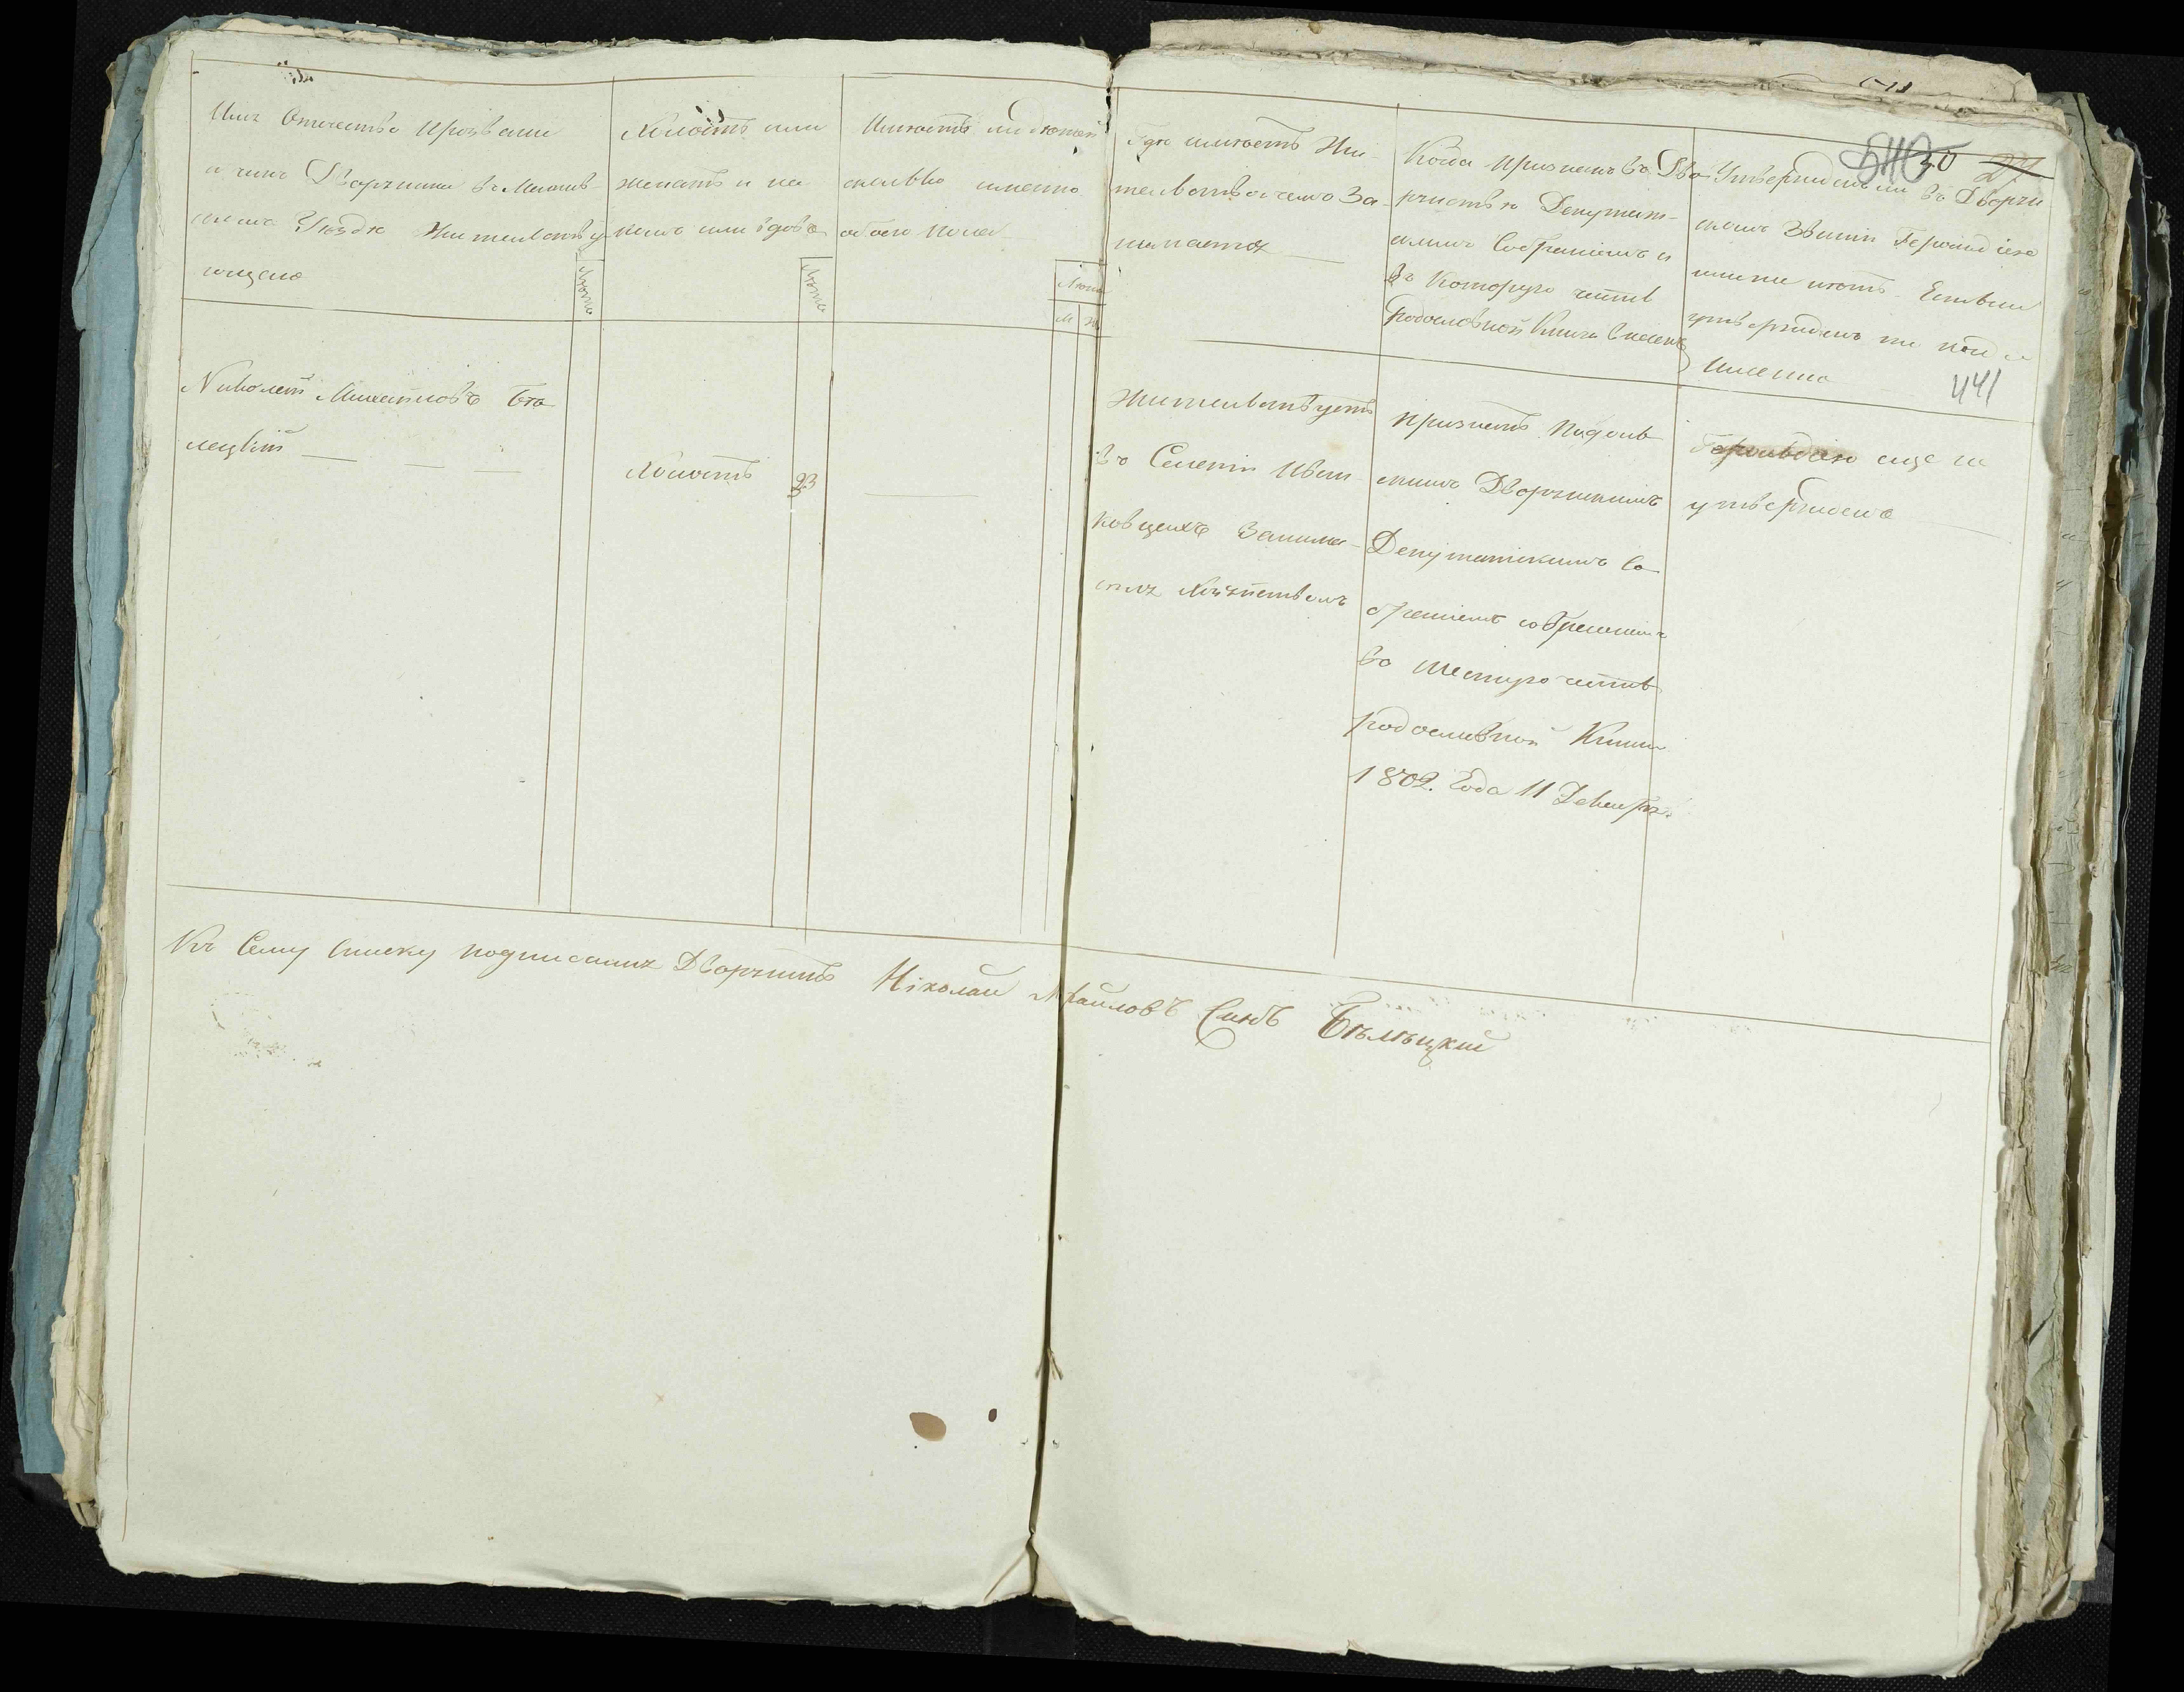 Имя Отчество Прозвание
и чинъ Дворянина въ
Уездѣ Жительству
ющаго
Лѣта
Холостъ или
женатъ и на
комъ или вдовъ
Лѣта
Имѣетъ ли дѣтей
сколько именно
обоего пола
Лѣта
М Ж
Где имѣетъ Жи-
тельство и чемъ За-
нимается
Когда признанъ въ Дво-
рянствѣ Депутат-
скимъ Собраніемъ и
въ Которую часть
Родословной Книги внесенъ
Утвержденъ ли въ Дворян
скомъ Званіи Герольдіею
или нетъ Естьли
утвержденъ то когда
Именно
30 27
441
Николай Михайловъ Бѣ
лецкій
Холостъ
23
Жительствуетъ
въ Селеніи Иван-
ковцахъ Занима-
ется Хозяйствомъ
Признанъ Подоль-
скимъ Дворянскимъ
Депутатскимъ Со-
браніемъ со внесеніемъ
въ шестую часть
родословной Книги
1802. Года 11 Декабря.
Герольдіею еще не
утвержденъ
Къ Сему Списку подписался Дворянинъ Ніколай Михайловъ Синъ Бѣлѣцкий